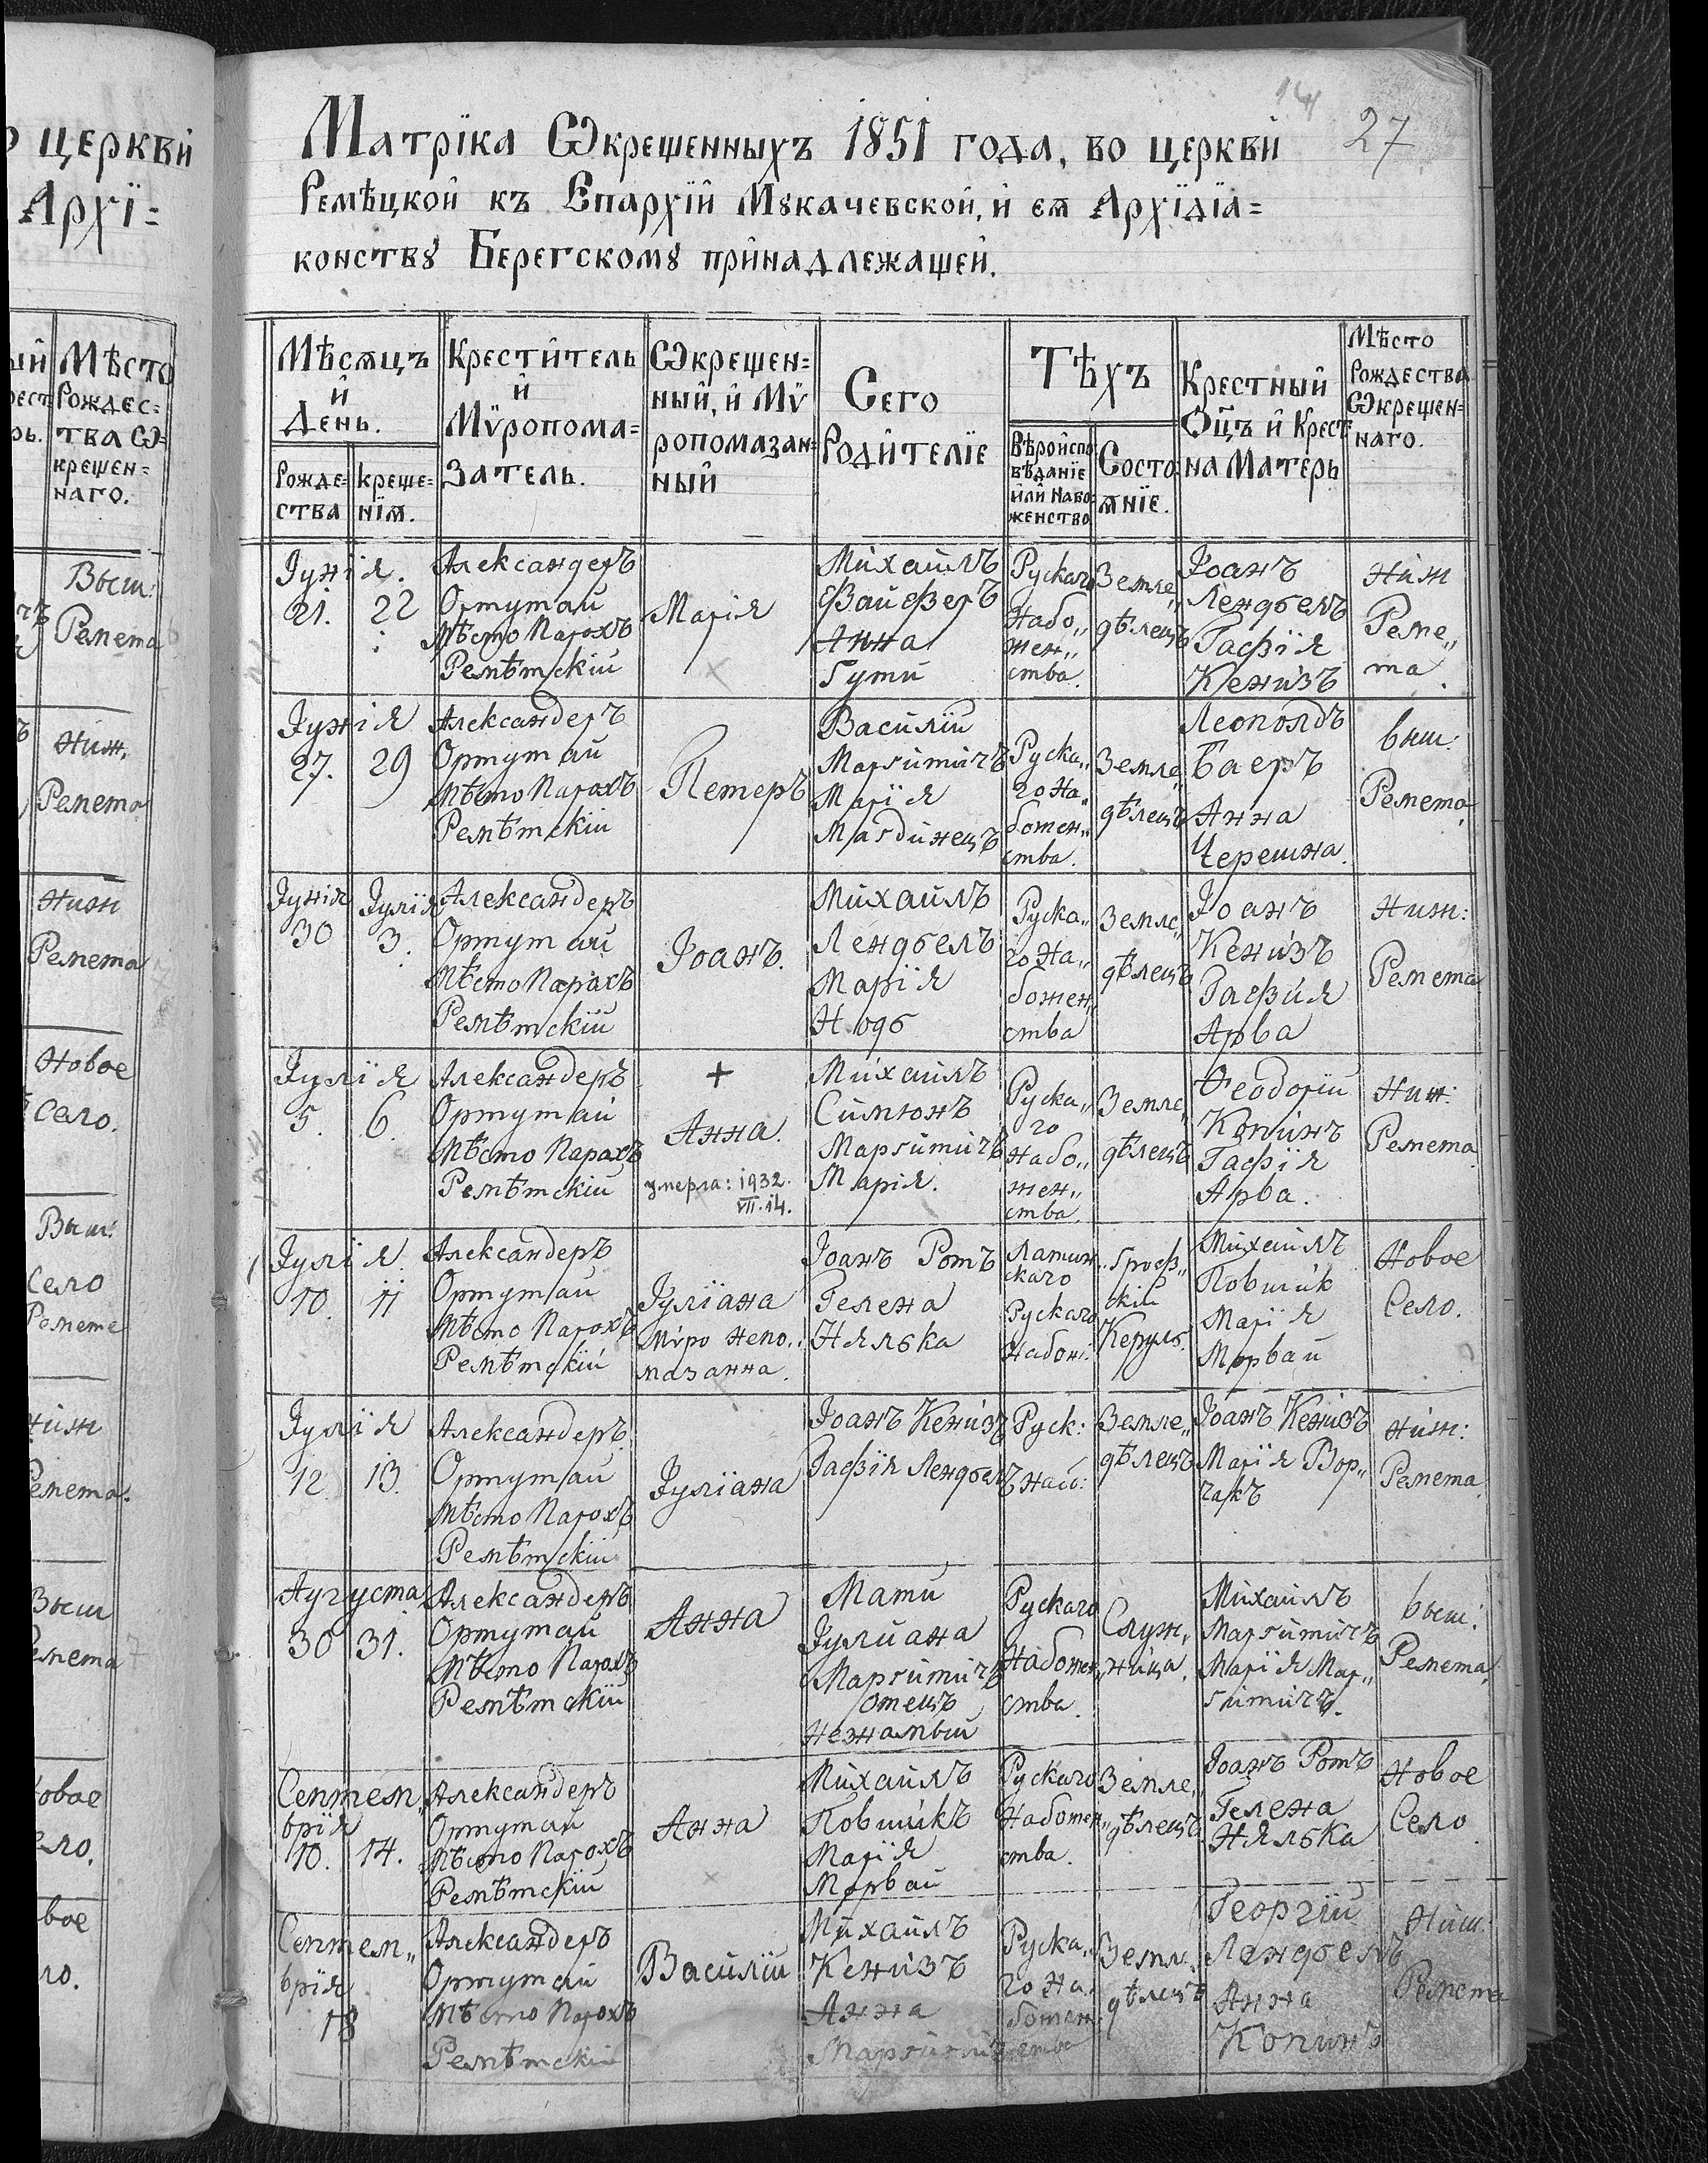 14
27
Матріка Ѡкрешенныхъ 1851 года, во церкви
Ремѣцкой къ Епархій Мꙋкачевской, и еѧ Архідіа=
конствꙋ Берегскомꙋ принадлежащей.
Мѣсѧцъ
и
День.
Рожде=
ства
креще=
нїѧ.
Креститель
и
Мѵропома=
затель.
Ѡкрешен=
ный, и Мѵ
ропомазан=
ный
Сего
Родителїе
Тѣхъ
Вѣроиспо
вѣданїе
или Набо
женство
Состо
ѧнїе.
Крестный
Ѻцъ и Крест
на Матерь
Мѣсто
Рождества
Ѡкрешен=
наго.
Јунія.
21. 22
Александеръ
Ортутай
мѣсто Парохъ
Ремѣтскій
Марія
Михаилъ
Файферъ
Анна
Гути
Рускаго
Набо„
жен„
ства.
Земле„
дѣлецъ
Јоанъ
Лендѣелъ
Гафїя
Кенизъ
Ниж
Реме„
та.
Јунія
27. 29
Александеръ
Ортутай
мѣсто Парохъ
Ремѣтскій
Петеръ
Василій
Маргитичъ
Марїя
Магдинецъ
Руска„
го На„
божен„
ства.
Земле„
дѣлецъ
Леополдъ
Баеръ
Анна
Черешна.
выш:
Ремета
Јунія
30
Јулїя
3.
Александеръ
Ортутай
мѣсто Парохъ
Ремѣтскій
Јоанъ.
Михаилъ
Лендѣелъ
Марїя
Руска„
го На„
божен„
ства
Земле„
дѣлецъ
Јоанъ
Кенизъ
Гафия
Арва
Ниж:
Ремета
Јулїя
5. 6.
Александеръ
Ортутай
мѣсто Парахъ
Ремѣтскій
+
Анна.
умерла: 1932.
VII.14.
Михаилъ
Симіонъ
Маргитичъ
Марія.
Руска„
го
Набо„
жен„
ства.
Земле„
дѣлецъ
Ѳеодорій
Копинъ
Гафїя
Арва.
Ниж:
Ремета
Јулїя.
10. 11
Александеръ
Ортутай
мѣсто Парохъ
Ремѣтскій
Јулїана
Мѵро непо„
мазанна.
Јоанъ Ротъ
Гелена
Нялька
Латин
скаго
Рускаго
Набож:
Гроф„
скій
Керуль.
Михаилъ
Ковшик
Марїя
Морвай
Новое
Село.
Јулїя
12. 13.
Александеръ
Ортутай
мѣсто Парохъ
Ремѣтскій
Јулїана
Јоанъ Кенизъ
Гафїя Лендѣелъ
Руск:
Наб:
Земле„
дѣлецъ
Јоанъ Кенизъ
Марїя Вор„
чакъ
Ниж:
Ремета
Аугуста
30 31.
Александеръ
Ортутай
мѣсто Парохъ
Ремѣтскій
Анна
Мати
Јулиана
Маргитичъ
отецъ
Незнамый
Рускаго
Набожен„
ства.
Служ„
ница.
Михаилъ
Маргитичъ
Марїя Мар„
гитичъ.
выш:
Ремета.
Септем„
врїя
10. 14.
Александеръ
Ортутай
мѣсто Парохъ
Ремѣтскій
Анна
Михаилъ
Ковшикъ
Марїя
Морвай
Рускаго
Набожен„
ства.
Земле„
дѣлецъ
Јоанъ Ротъ
Гелена
Нялька
Новое
Село
Септем„
врїя
18
Александеръ
Ортутай
мѣсто Парохъ
Ремѣтскій
Василій
Михаилъ
Кенизъ
Анна
Маргитичъ
Руска„
го На„
божен„
ства
Земле„
дѣлецъ
Георгій
Лендѣелъ
Анна
Копинъ
Ниж:
Ремета